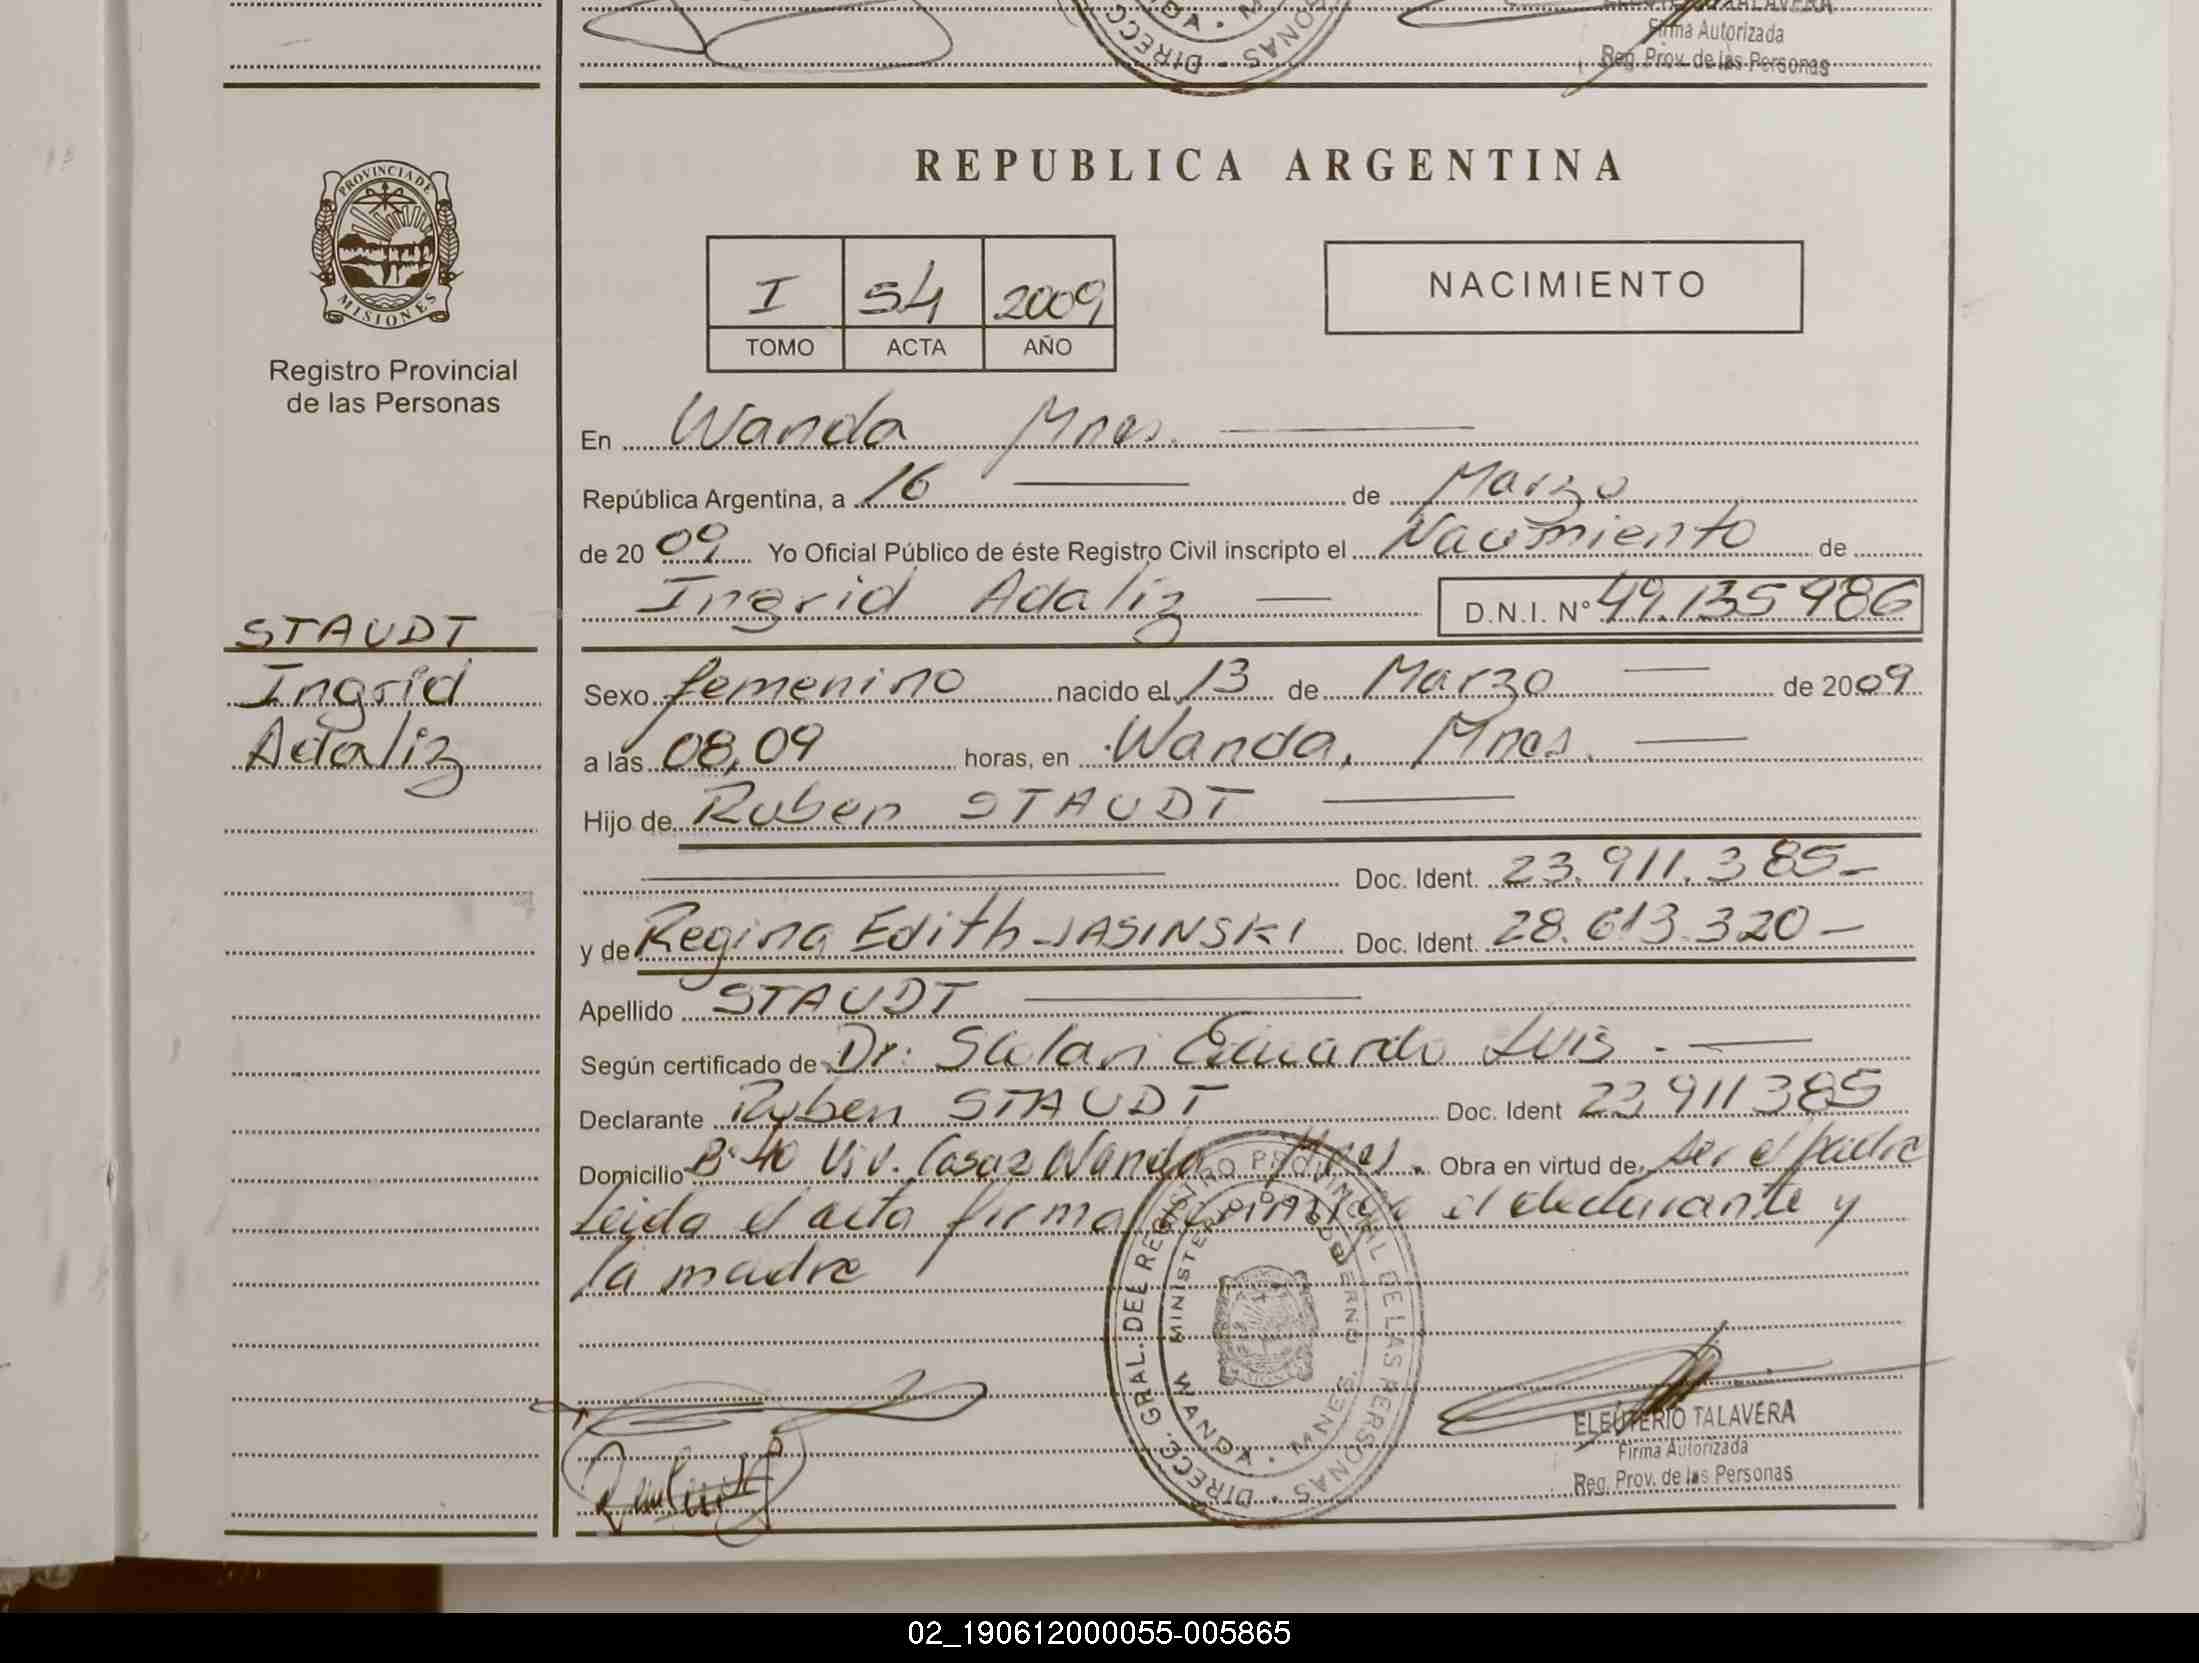 Firma Autorizada
Reg. Prov. de las Personas
PROVINCIA DE
MISIONES
Registro Provincial
de las Personas
STAUDT
Ingrid
Adaliz
REPUBLICA ARGENTINA
I 54 2009
TOMO ACTA AÑO
NACIMIENTO
En Wanda Mnes.
República Argentina, a 16 de Marzo
de 20 09 Yo Oficial Público de éste Registro Civil inscripto el Nacimiento de
Ingrid Adaliz D.N.I. Nº 49.135986
Sexo femenino nacido el 13 de Marzo de 2009
a las 08,09 horas, en Wanda, Mnes.
Hijo de Ruben STAUDT
Doc. Ident. 23.911.385-
y de Regina Edith JASINSKI Doc. Ident. 28.613.320-
Apellido STAUDT
Según certificado de Dr. Eduardo Luis.
Declarante Ruben STAUDT Doc. Ident 23.911385
Domicilio Bº 40 Viv. Wanda Mnes. Obra en virtud de ser el padre
Leida el acta firma el declarante y
la madre
DIRECC. GRAL. DEL REGISTRO PROVINCIAL DE LAS PERSONAS
MINISTERIO DE GOBIERNO
WANDA. MNES.
ELEUTERIO TALAVERA
Firma Autorizada
Reg. Prov. de las Personas
02_190612000055-005865